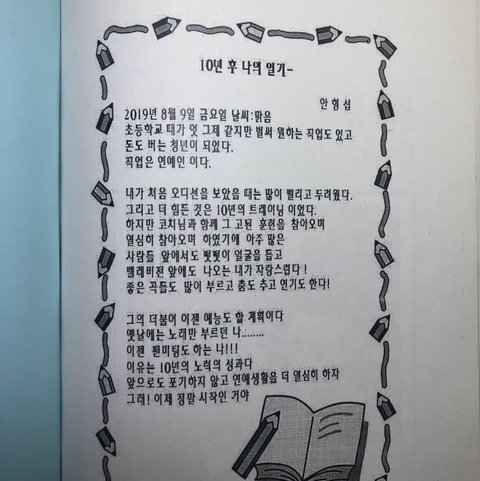 10년 후 나의 일기~
안형섭
2019년 8월 9일 금요일 날씨:맑음
초등학교 때가 엇 그제 같지만 벌써 원하는 직업도 있고
돈도 버는 청년이 되었다.
직업은 연예인 이다.
내가 처음 오디션을 보았을 때는 많이 떨리고 두려웠다.
그리고 더 힘든 것은 10년의 트레이닝 이었다.
하지만 코치님과 함께 그 고된 훈련을 참아오며
열심히 참아오며 하였기에 아주 많은
사람들 앞에서도 떳떳이 얼굴을 들고
텔레비젼 앞에도 나오는 내가 자랑스럽다!
좋은 곡들도 많이 부르고 춤도 추고 연기도 한다!
그의 더불어 이젠 예능도 할 계획이다
옛날에는 노래만 부르던 나........
이젠 팬미팅도 하는 나!!!
이유는 10년의 노력의 성과다
앞으로도 포기하지 않고 연예생활을 더 열심히 하자
그래! 이제 정말 시작인 거야